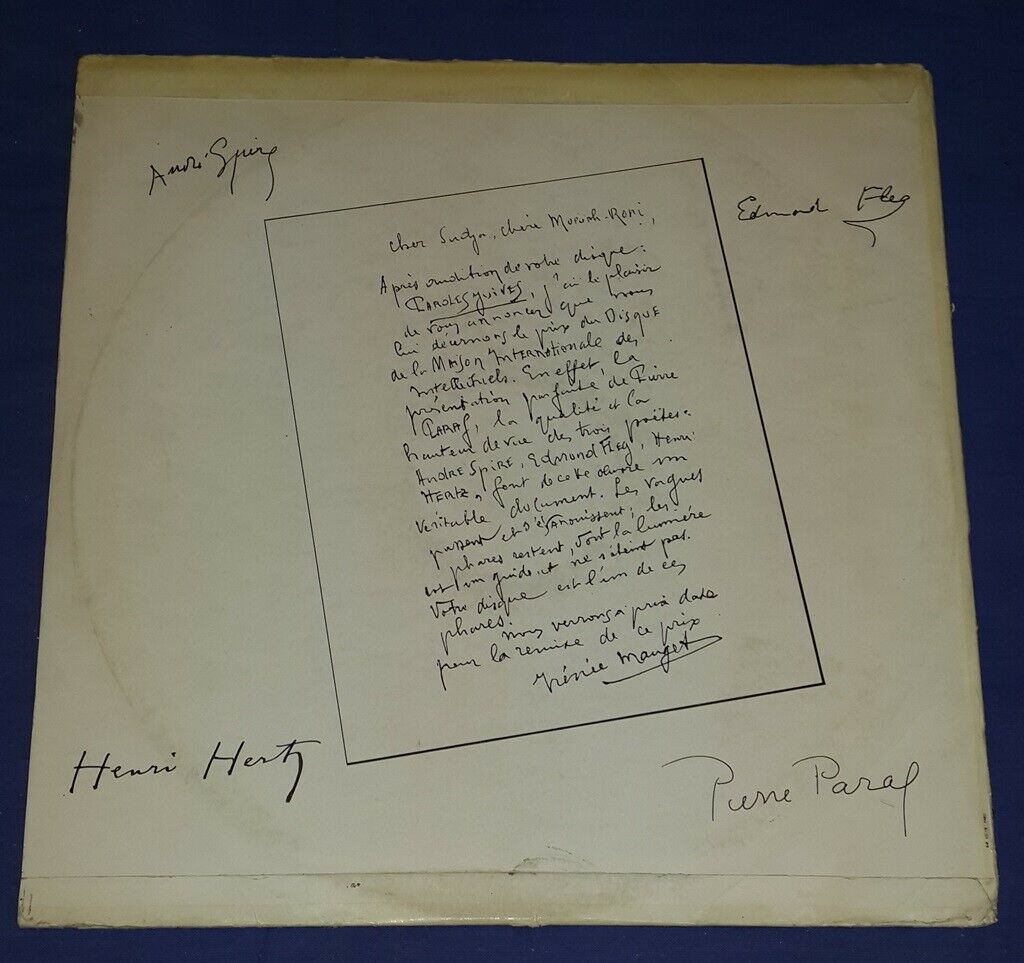 André Spire
Edmond Fleg
Cher Sudya, chère Morvah-Romi,
Après audition de votre disque:
PAROLES JUIVES, j'ai le plaisir
de vous annoncer que nous
lui décernons le prix du DISQUE
de la MAISON INTERNATIONALE des
INTELLECTUELS. En effet, la
présentation parfaite de Pierre
PARAF, la qualité et la
hauteur de vue des trois poètes:
ANDRE SPIRE, EDMOND FLEG, HENRI
HERTZ, font de cette œuvre un
véritable document. Les vagues
passent et s'évanouissent; les
phares restent, dont la lumière
est un guide et ne s'éteint pas.
Votre disque est l'un de ces
phares.
Nous verrons à prix date
pour la remise de ce prix
Irénée Mauget
Henri Hertz
Pierre Paraf